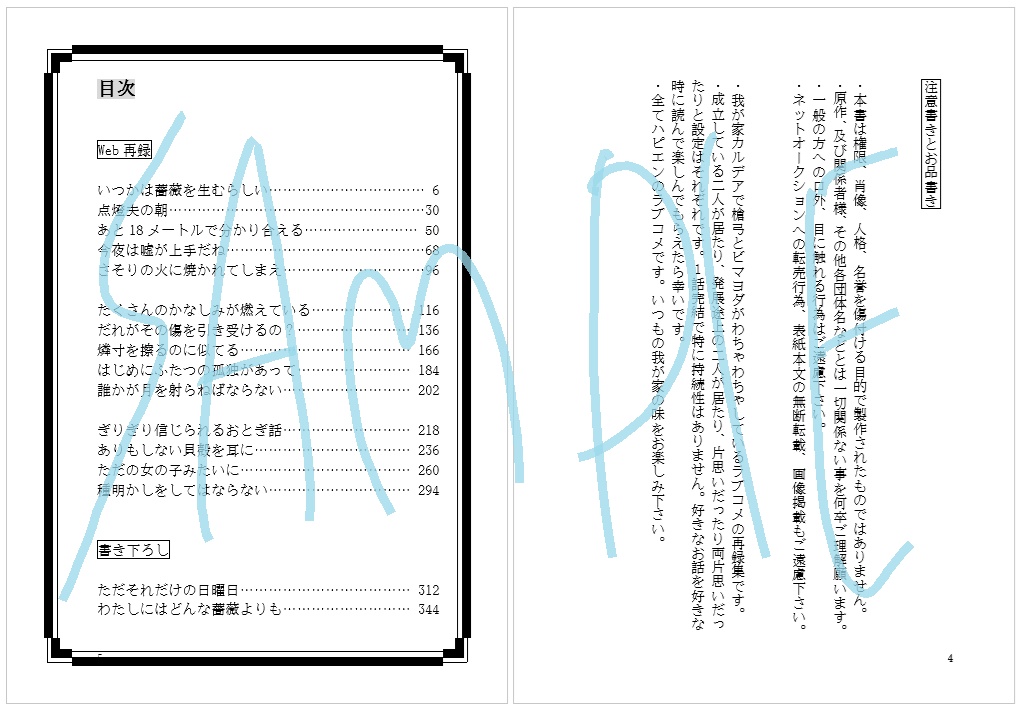 注意書きとお品書き
・本書は権限、肖像、人格、名誉を傷付ける目的で製作されたものではありません。
・原作、及び関係者様、その他各団体名などとは一切関係ない事を何卒ご理解願います。
・一般の方への口外、目に触れる行為はご遠慮下さい。
・ネットオークションへの転売行為、表紙本文の無断転載、画像掲載もご遠慮下さい。
・我が家カルデアで槍弓とビマヨダがわちゃわちゃしているラブコメの再録集です。
・成立している二人が居たり、発展途上の二人が居たり、片思いだったり両片思いだっ
たりと設定はそれぞれです。1話完結で特に持続性はありません。好きなお話を好きな
時に読んで楽しんでもらえたら幸いです。
・全てハピエンのラブコメです。いつもの我が家の味をお楽しみ下さい。
4
目次
Web 再録
いつかは薔薇を生むらしい…………………………… 6
点燈夫の朝……………………………………………30
あと 18 メートルで分かり合える…………………… 50
今夜は嘘が上手だね…………………………………68
さそりの火に焼かれてしまえ…………………………96
たくさんのかなしみが燃えている…………………… 116
だれがその傷を引き受けるの?……………………… 136
燐寸を擦るのに似てる……………………………… 166
はじめにふたつの孤独があって……………………… 184
誰かが月を射らねばならない………………………… 202
ぎりぎり信じられるおとぎ話………………………… 218
ありもしない貝殻を耳に……………………………… 236
ただの女の子みたいに……………………………… 260
種明かしをしてはならない…………………………… 294
書き下ろし
ただそれだけの日曜日……………………………… 312
わたしにはどんな薔薇よりも………………………… 344
5
SAmPLE